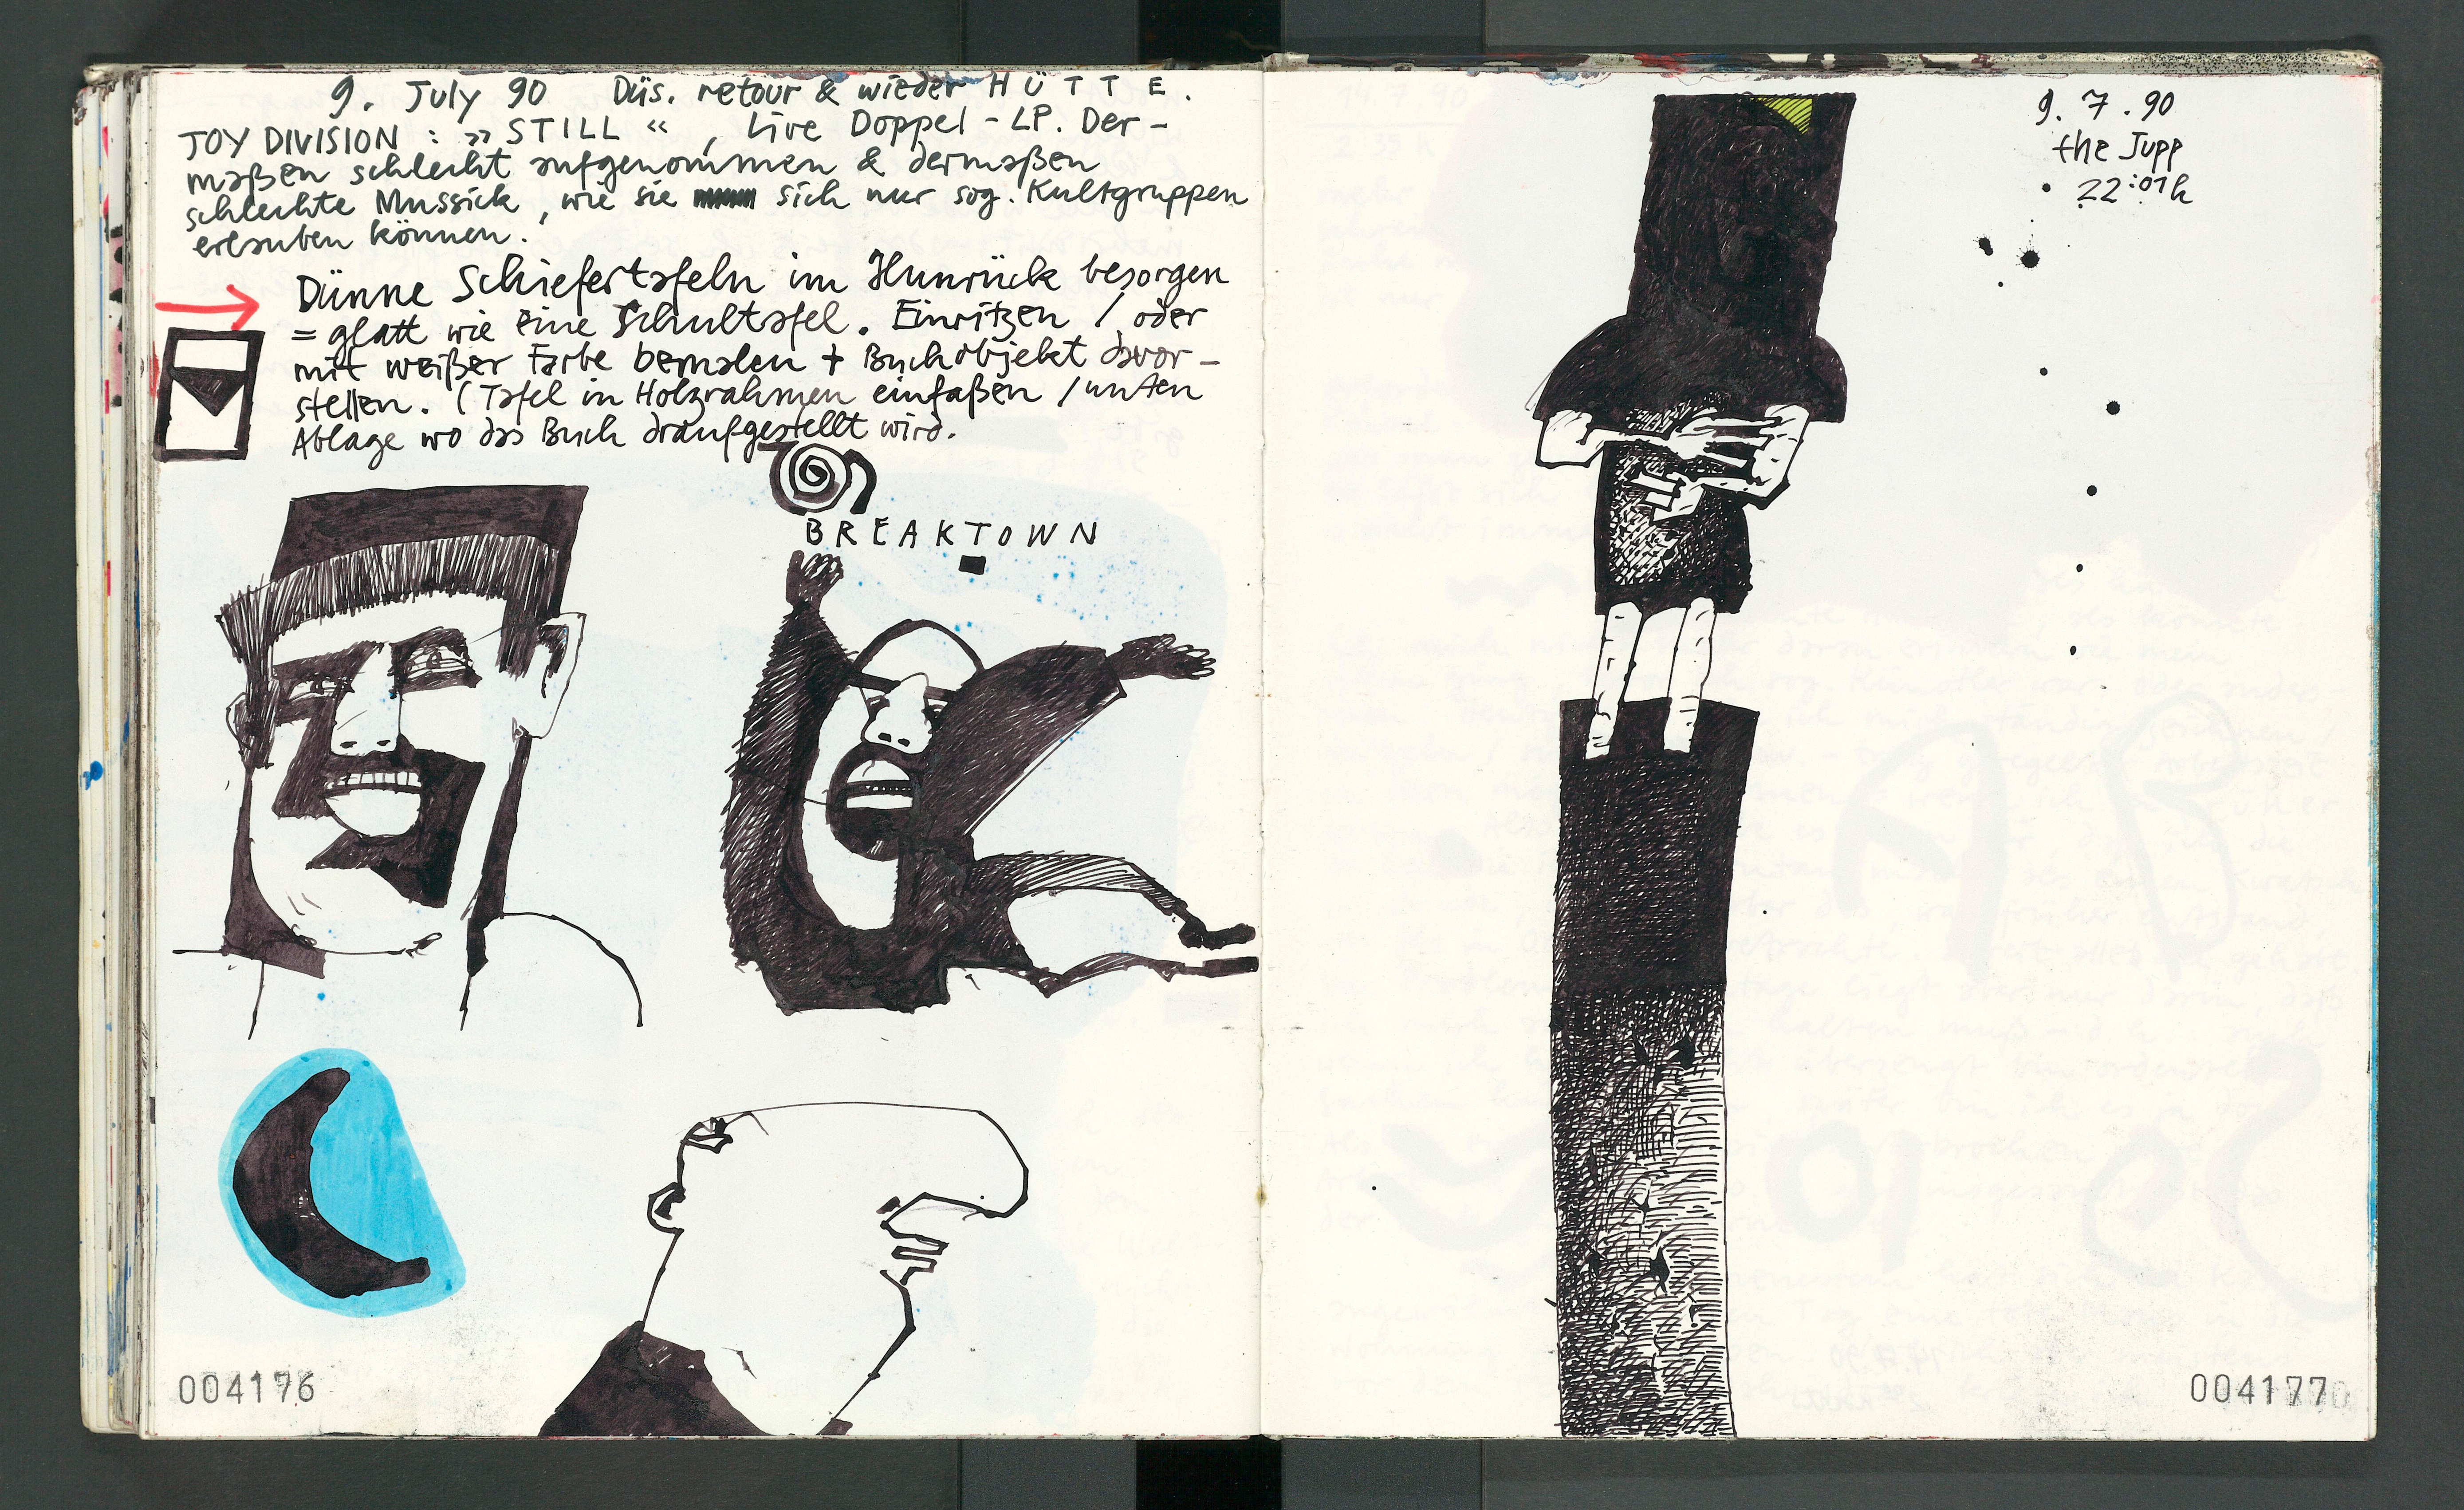 9. July 90 Düs. retour & wieder HÜTTE.
JOY DIVISION : »STILL« , Live Doppel-LP. Der-
maßen schlecht aufgenommen & dermaßen
schlechte Mussick, wie sie sich nur sog. Kultgruppen
erlauben können.
Dünne Schiefertafeln im Hunrück besorgen
= glatt wie eine Schultafel. Einritzen / oder
mit weißer Farbe bemalen + Buchobjekt davor-
stellen. (Tafel in Holzrahmen einfaßen / unten
Ablage wo das Buch draufgestellt wird.
BREAKTOWN
004176
9. 7. 90
the Jupp
22:01h
004177